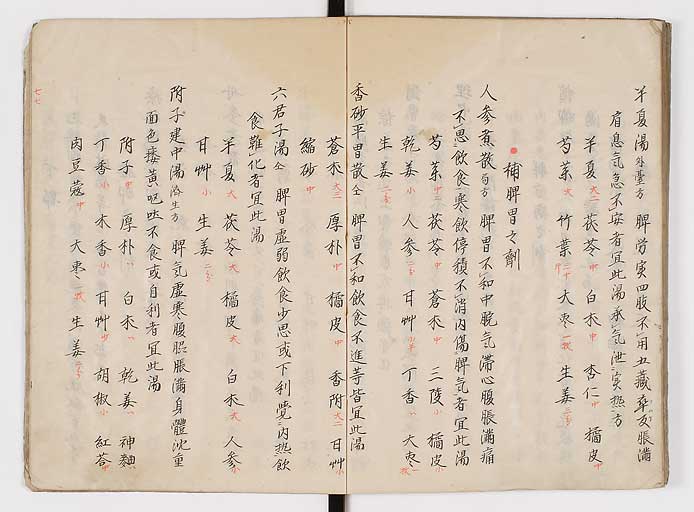 半夏湯 外臺方 脾労実四肢不用五藏乖反脹満
肩息氣急不安者宜此湯承氣泄実熱方
半夏 大二 茯苓 中 白朮 中 杏仁 中 橘皮 中
芍薬 大 竹葉 大棗 生姜
補脾胃之劑
人参煮散 局方 脾胃不和中脘氣滞心腹脹満痛
不思飲食寒飲停積不消内傷脾氣者宜此湯
芍薬 茯苓 中 蒼朮 中 三陵 小 橘皮 小
乾姜 小 人参 丁香 大棗
生姜
香砂平胃散 仝 脾胃不和飲食不進等皆宜此湯
蒼朮 大二 厚朴 中 橘皮 中 香附 大二 甘艸 小
縮砂 中
六君子湯 仝 脾胃虚弱飲食少思或下利覺内熱飲
食難化者宜此湯
半夏 大 茯苓 大 橘皮 大 白朮 大 人参 小
甘艸 小 生姜
附子建中湯 済生方 脾氣虚寒腹脇脹満身體沈重
面色痿黄呕吐不食或自利者宜此湯
附子 中 厚朴 白朮 乾姜 神麯
丁香 小 木香 小 甘艸 少 胡椒 小 紅荅
肉豆蔲 中 大棗 生姜
七七